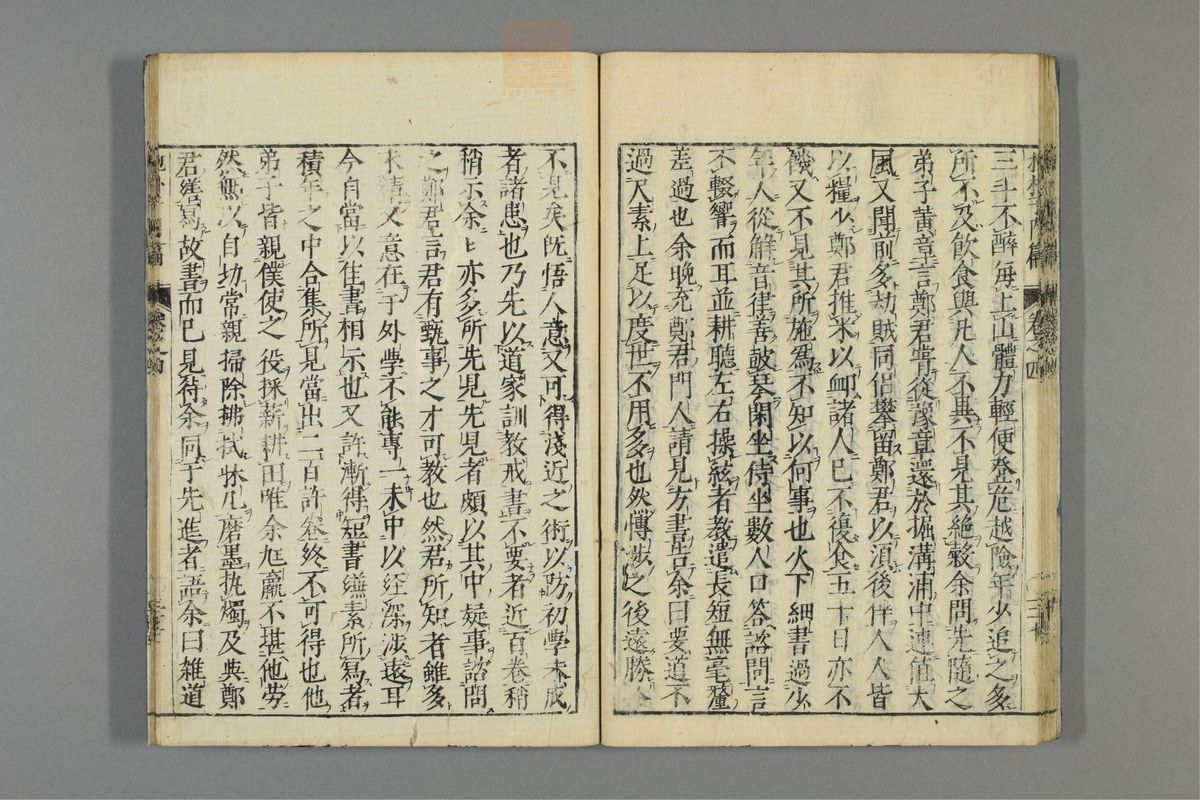 三斗不醉每上山體力輕便登危越險年少追之多
所不及飲食與凡人不異不見其絕穀余問先隨之
弟子黃章言鄭君嘗從豫章還於掘溝浦中連值大
風又聞前多劫賊同侶攀留鄭君以須後伴人人皆
以糧少鄭君推米以卹諸人已不復食五十日亦不
饑又不見其所施為不知以何事也火下細書過少
年人從解音律善鼓琴閑坐侍坐數人口答諮問言
不輟響而耳並耕聽左右操絃者教遣長短無毫釐
差過也余晚充鄭君門人請見方書告余曰要道不
過尺素上足以度世不用多也然愽涉之後遠勝於
不見矣既悟人意又可得淺近之術以防初學未成
者諸患也乃先以道家訓教戒書不要者近百卷稍
稍示余〻亦多所先見先見者頗以其中疑事諮問
之鄭君言君有甄事之才可教也然君所知者雖多
未精又意在于外學不能專一未中以經深涉遠耳
今自當以佳書相示也又許漸得短書縑素所寫者
積年之中合集所見當出二百許卷終不可得也他
弟子皆親僕使之役採薪耕田唯余尪羸不堪他勞
然無以自効常親掃除拂拭牀几磨墨執燭及與鄭
君繕寫故書而已見待余同于先進者語余曰雜道